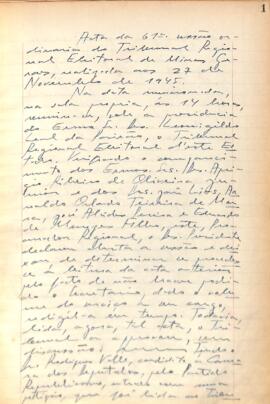 1
Acta da 61ª. sessão or-
dinaria do Tribunal Regio-
nal Eleitoral de Minas Ge-
raes, realizada aos 27 de
Novembro de 1945.
Na data mencionada,
na sala propria, ás 14 horas,
reuniu-se, sob a presidencia
do Exmo Sr. Des.
Leal da o Tribunal
Regional Eleitoral d'este Es-
tado. o compareci-
mento dos Exmos. srs. Des.
Ribeiro de Oliveira e
dos srs. Lins, Ar-
naldo Orlando Teixeira de Mou-
ra, José Alcides Pereira e Eduardo
de Menezes Filho, este, Pro-
curador Regional, o sr. Presidente
declarou aberta a sessão e dei-
xou de determinar se proceda-
se á leitura da acta anterior,
pelo facto de não haver podi-
do o Secretario, dado o volu-
me do serviço a seu cargo,
redigil-a em tempo. Todavia,
lida, agora, tal acta, o Tri-
bunal a approvou, sem
discussão;
Rodrigues Valle, candidato á Cama-
ra dos Deputados, pelo Partido
Republicano,
petição, que foi lida ao